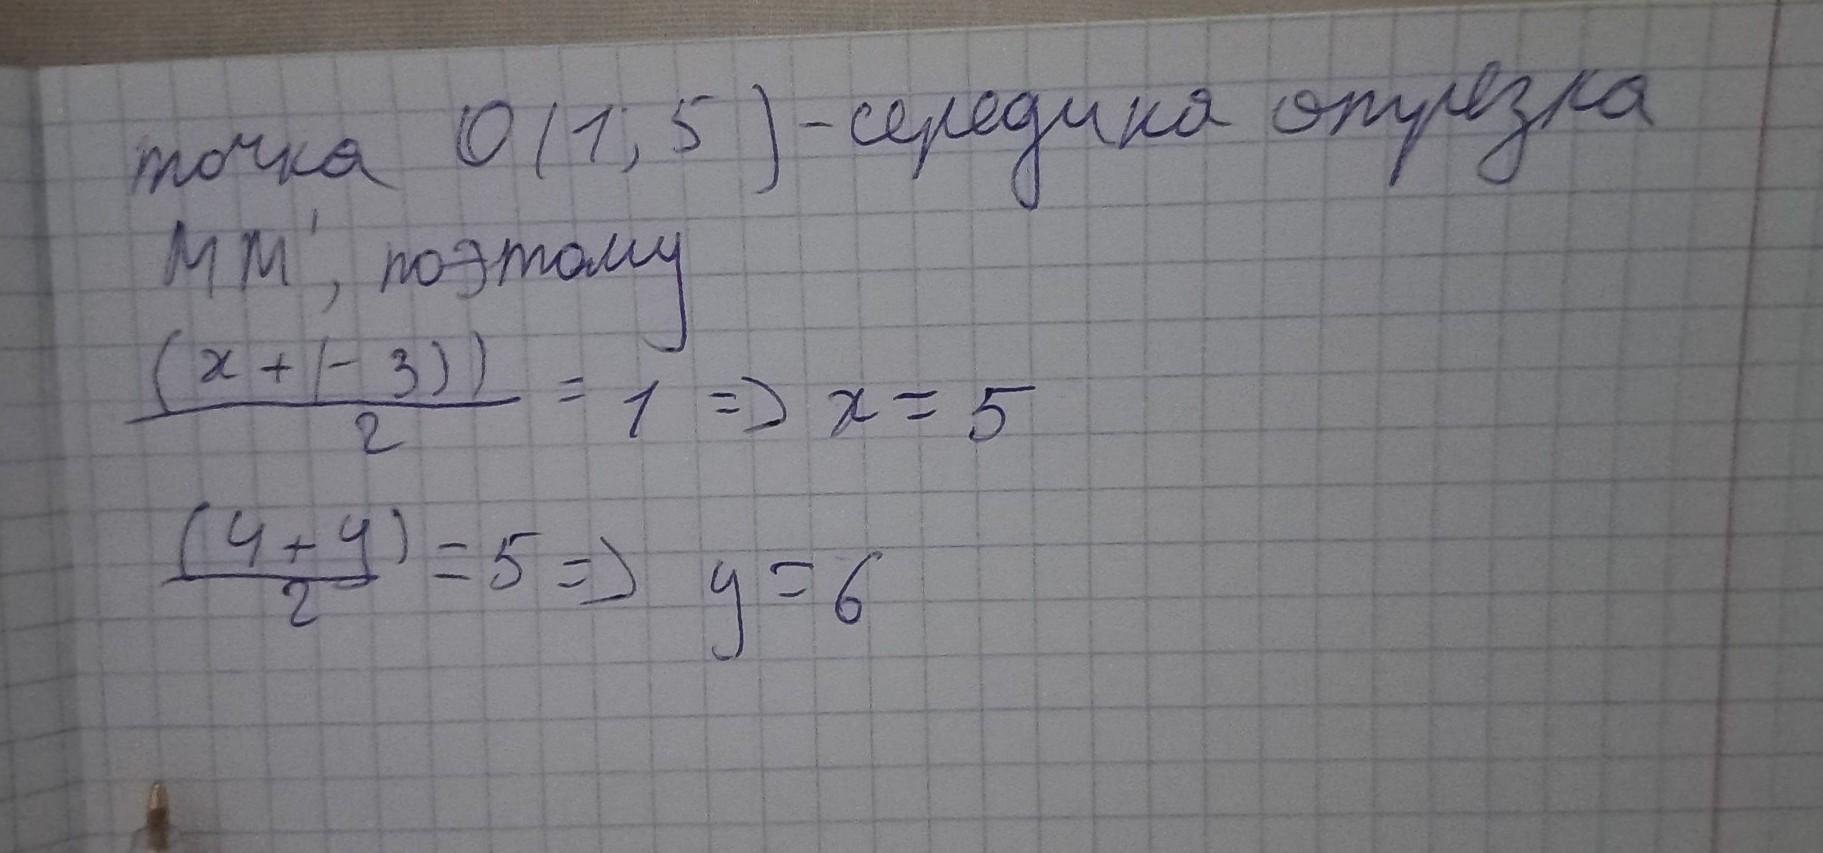 точка O(1; 5) - середина отрезка
MM', поэтому
(x + (-3))/2 = 1 => x = 5
(4 + y)/2 = 5 => y = 6